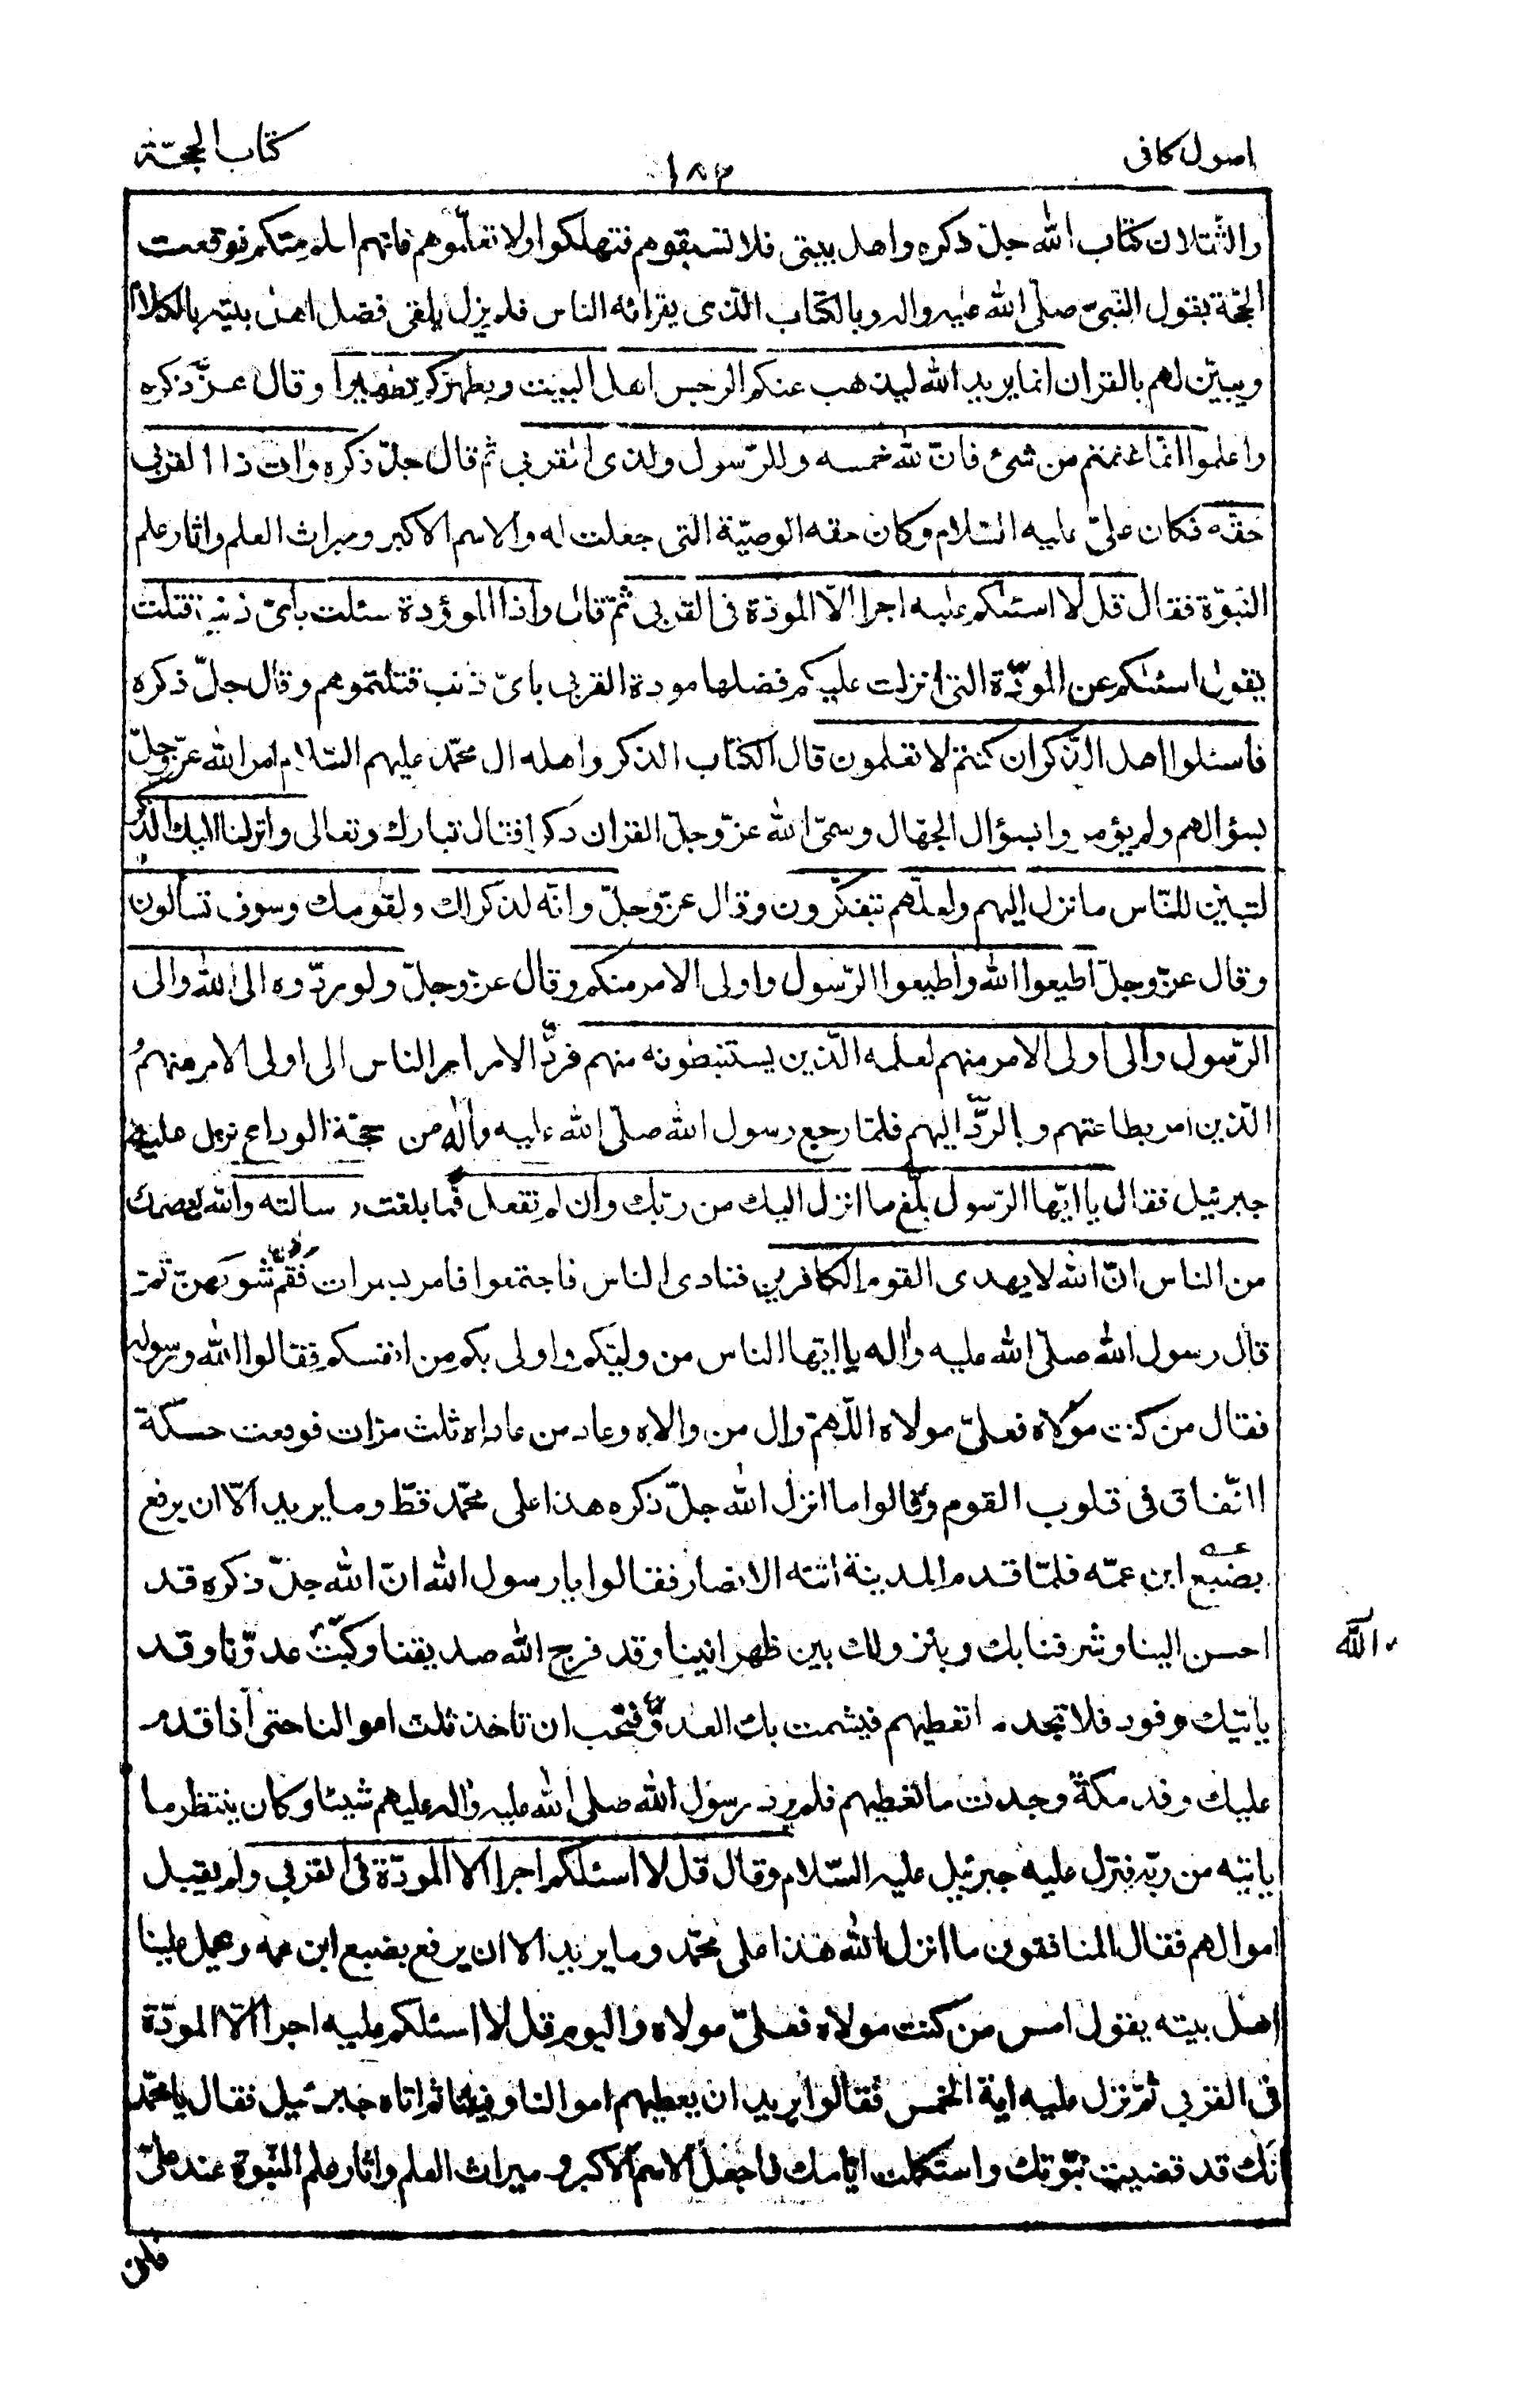 اصول كافى
١٨٣
كتاب الحجّة
والثقلان كتاب الله جلّ ذكره واهل بيتى فلا تسبقوهم فتهلكوا ولا تعلّموهم فانّهم اعلم منكم فوقعت
الحجّة بقول النّبىّ صلّى الله عليه واله وبالكتاب الّذى يقرائه الناس فلم يزل يلقى فضل اهل بيته بالكلام
ويبيّن لهم بالقران انما يريد الله ليذهب عنكم الرجس اهل البيت ويطهركم تطهيرا وقال عزّ ذكره
واعلموا انّما غنمتم من شئ فانّ لله خمسه وللرّسول ولذى القربى ثم قال جلّ ذكره وات ذا القربى
حقّه فكان علىّ عليه السّلام وكان حقه الوصيّة التى جعلت له والاسم الاكبر وميراث العلم واثار علم
النبوّة فقال قل لا اسئلكم عليه اجرا الّا المودّة فى القربى ثمّ قال واذا الموؤدة سئلت باىّ ذنب قتلت
يقول اسئلكم عن المودّة التى انزلت عليكم فضلها مودة القربى باىّ ذنب قتلتموهم وقال جلّ ذكره
فاسئلوا اهل الذّكر ان كنتم لا تعلمون قال الكتاب الذكر واهله ال محمّد عليهم السّلام امر الله عزّ وجلّ
بسؤالهم ولم يؤمروا بسؤال الجهّال وسمىّ الله عزّ وجلّ القران ذكرا فقال تبارك وتعالى وانزلنا اليك الذّكر
لتبيّن للنّاس ما نزل اليهم ولعلّهم يتفكّرون وقال عزّ وجلّ وانّه لذكر لك ولقومك وسوف تسألون
وقال عزّ وجلّ اطيعوا الله واطيعوا الرّسول واولى الامر منكم وقال عزّ وجلّ ولو ردّوه الى الله والى
الرّسول والى اولى الامر منهم لعلمه الّذين يستنبطونه منهم فردّ الامر امر الناس الى اولى الامر منهم
الّذين امر بطاعتهم وبالرّدّ اليهم فلمّا رجع رسول الله صلّى الله عليه واله من حجّة الوداع نزل عليه
جبرئيل فقال يا ايّها الرّسول بلّغ ما انزل اليك من ربّك وان لم تفعل فما بلغت رسالته والله يعصمك
من الناس انّ الله لا يهدى القوم الكافرين فنادى الناس فاجتمعوا فامر بسمرات فقمّ شوكهنّ ثمّ
قال رسول الله صلّى الله عليه واله يا ايّها الناس من وليّكم واولى بكم من انفسكم فقالوا الله ورسوله
فقال من كنت مولاه فعلىّ مولاه اللّهمّ وال من والاه وعاد من عاداه ثلث مرّات فوقعت حسكة
النّفاق فى قلوب القوم وقالوا ما انزل الله جلّ ذكره هذا على محمّد قطّ وما يريد الّا ان يرفع
بضبع ابن عمّه فلمّا قدم المدينة اتته الانصار فقالوا يا رسول الله انّ الله جلّ ذكره قد
احسن الينا وشرفنا بك وبنزولك بين ظهرانينا وقد فرح الله صديقنا وكبّت عدوّنا وقد
الله
ياتيك وفود فلا تجد ما تعطيهم فيشمت بك العدوّ فنحب ان تاخذ ثلث اموالنا حتى اذا قدم
عليك وفد مكة وجدت ما تعطيهم فلم يرد رسول الله صلى الله عليه واله عليهم شيئا وكان ينتظر ما
ياتيه من ربّه فنزل عليه جبرئيل عليه السّلام وقال قل لا اسئلكم اجرا الا المودّة فى القربى ولم يقبل
اموالهم فقال المنافقون ما انزل الله هذا على محمّد وما يريد الا ان يرفع بضبع ابن عمه وعمل علينا
اهل بيته يقول امس من كنت مولاه فعلىّ مولاه واليوم قل لا اسئلكم عليه اجرا الّا المودّة
فى القربى ثمّ نزل عليه اية الخمس فقالوا يريد ان يعطيهم اموالنا وفيئنا ثم اتاه جبرئيل فقال يا محمّد
انّك قد قضيت نبّوتك واستكملت ايّامك فاجعل الاسم الاكبر وميراث العلم واثار علم النّبوة عند علىّ
فانى